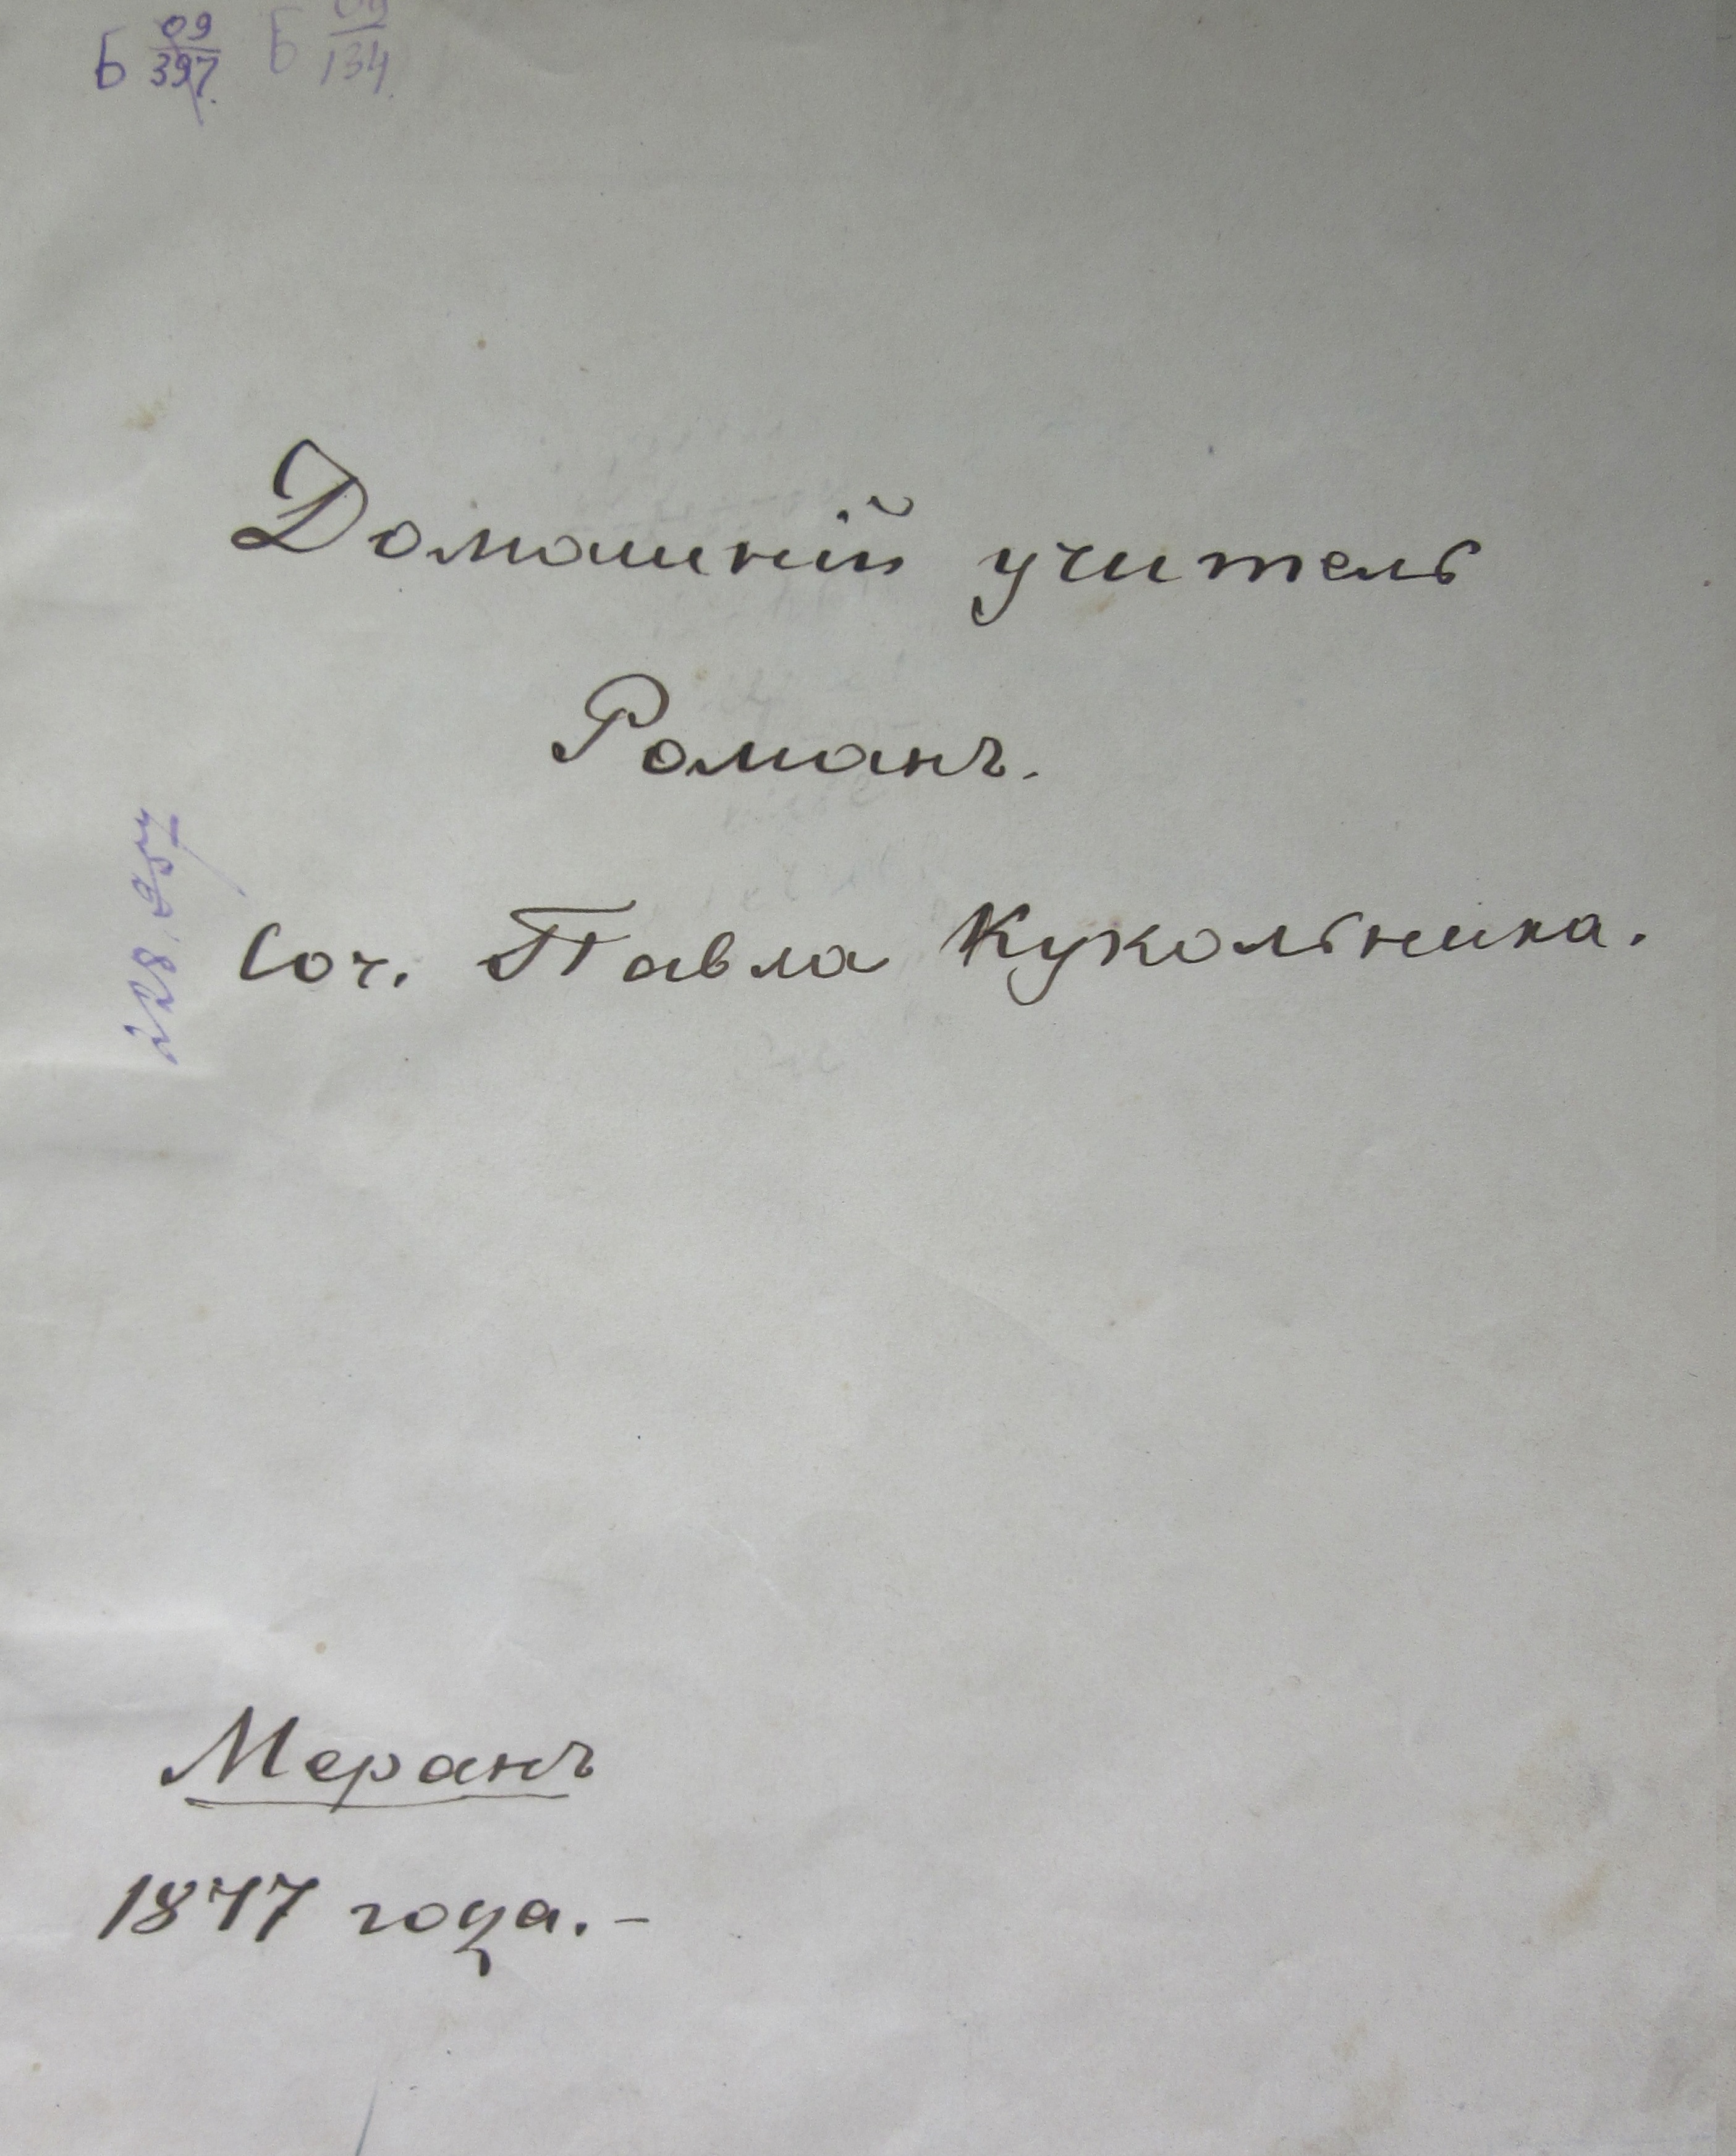 Б 09/397. Б 09/134.
Домашній учитель
Романъ.
Соч. Павла Кукольника.
228.
Меранъ
1877 года.-